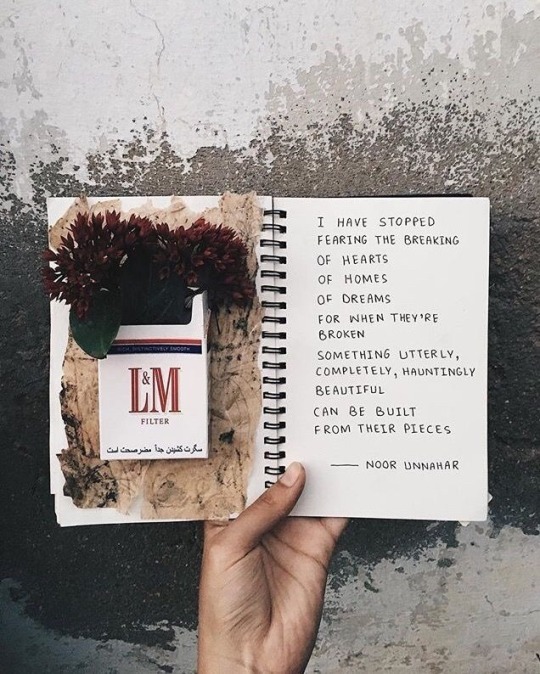 RICH, DISTINCTIVELY SMOOTH
L&M
FILTER
سگرت کشیدن جداً مضرصحت است
I HAVE STOPPED
FEARING THE BREAKING
OF HEARTS
OF HOMES
OF DREAMS
FOR WHEN THEY'RE
BROKEN
SOMETHING UTTERLY,
COMPLETELY, HAUNTINGLY
BEAUTIFUL
CAN BE BUILT
FROM THEIR PIECES
— NOOR UNNAHAR